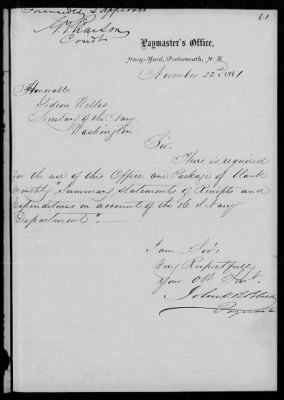 Forwarded & approved
61
G. F. Pearson
Comdt
Paymaster's Office,
Navy-Yard, Portsmouth, N. H.
November 22nd 1861
Honorable
Gideon Welles
Secretary of the Navy
Washington
Sir.
There is required
for the use of this Office one Package of blank
monthly "Summary Statements of Receipts and
Expenditures on account of the U. S. Navy
Department".
I am Sir
Very Respectfully
Your Obt Servt.
John
Paymaster